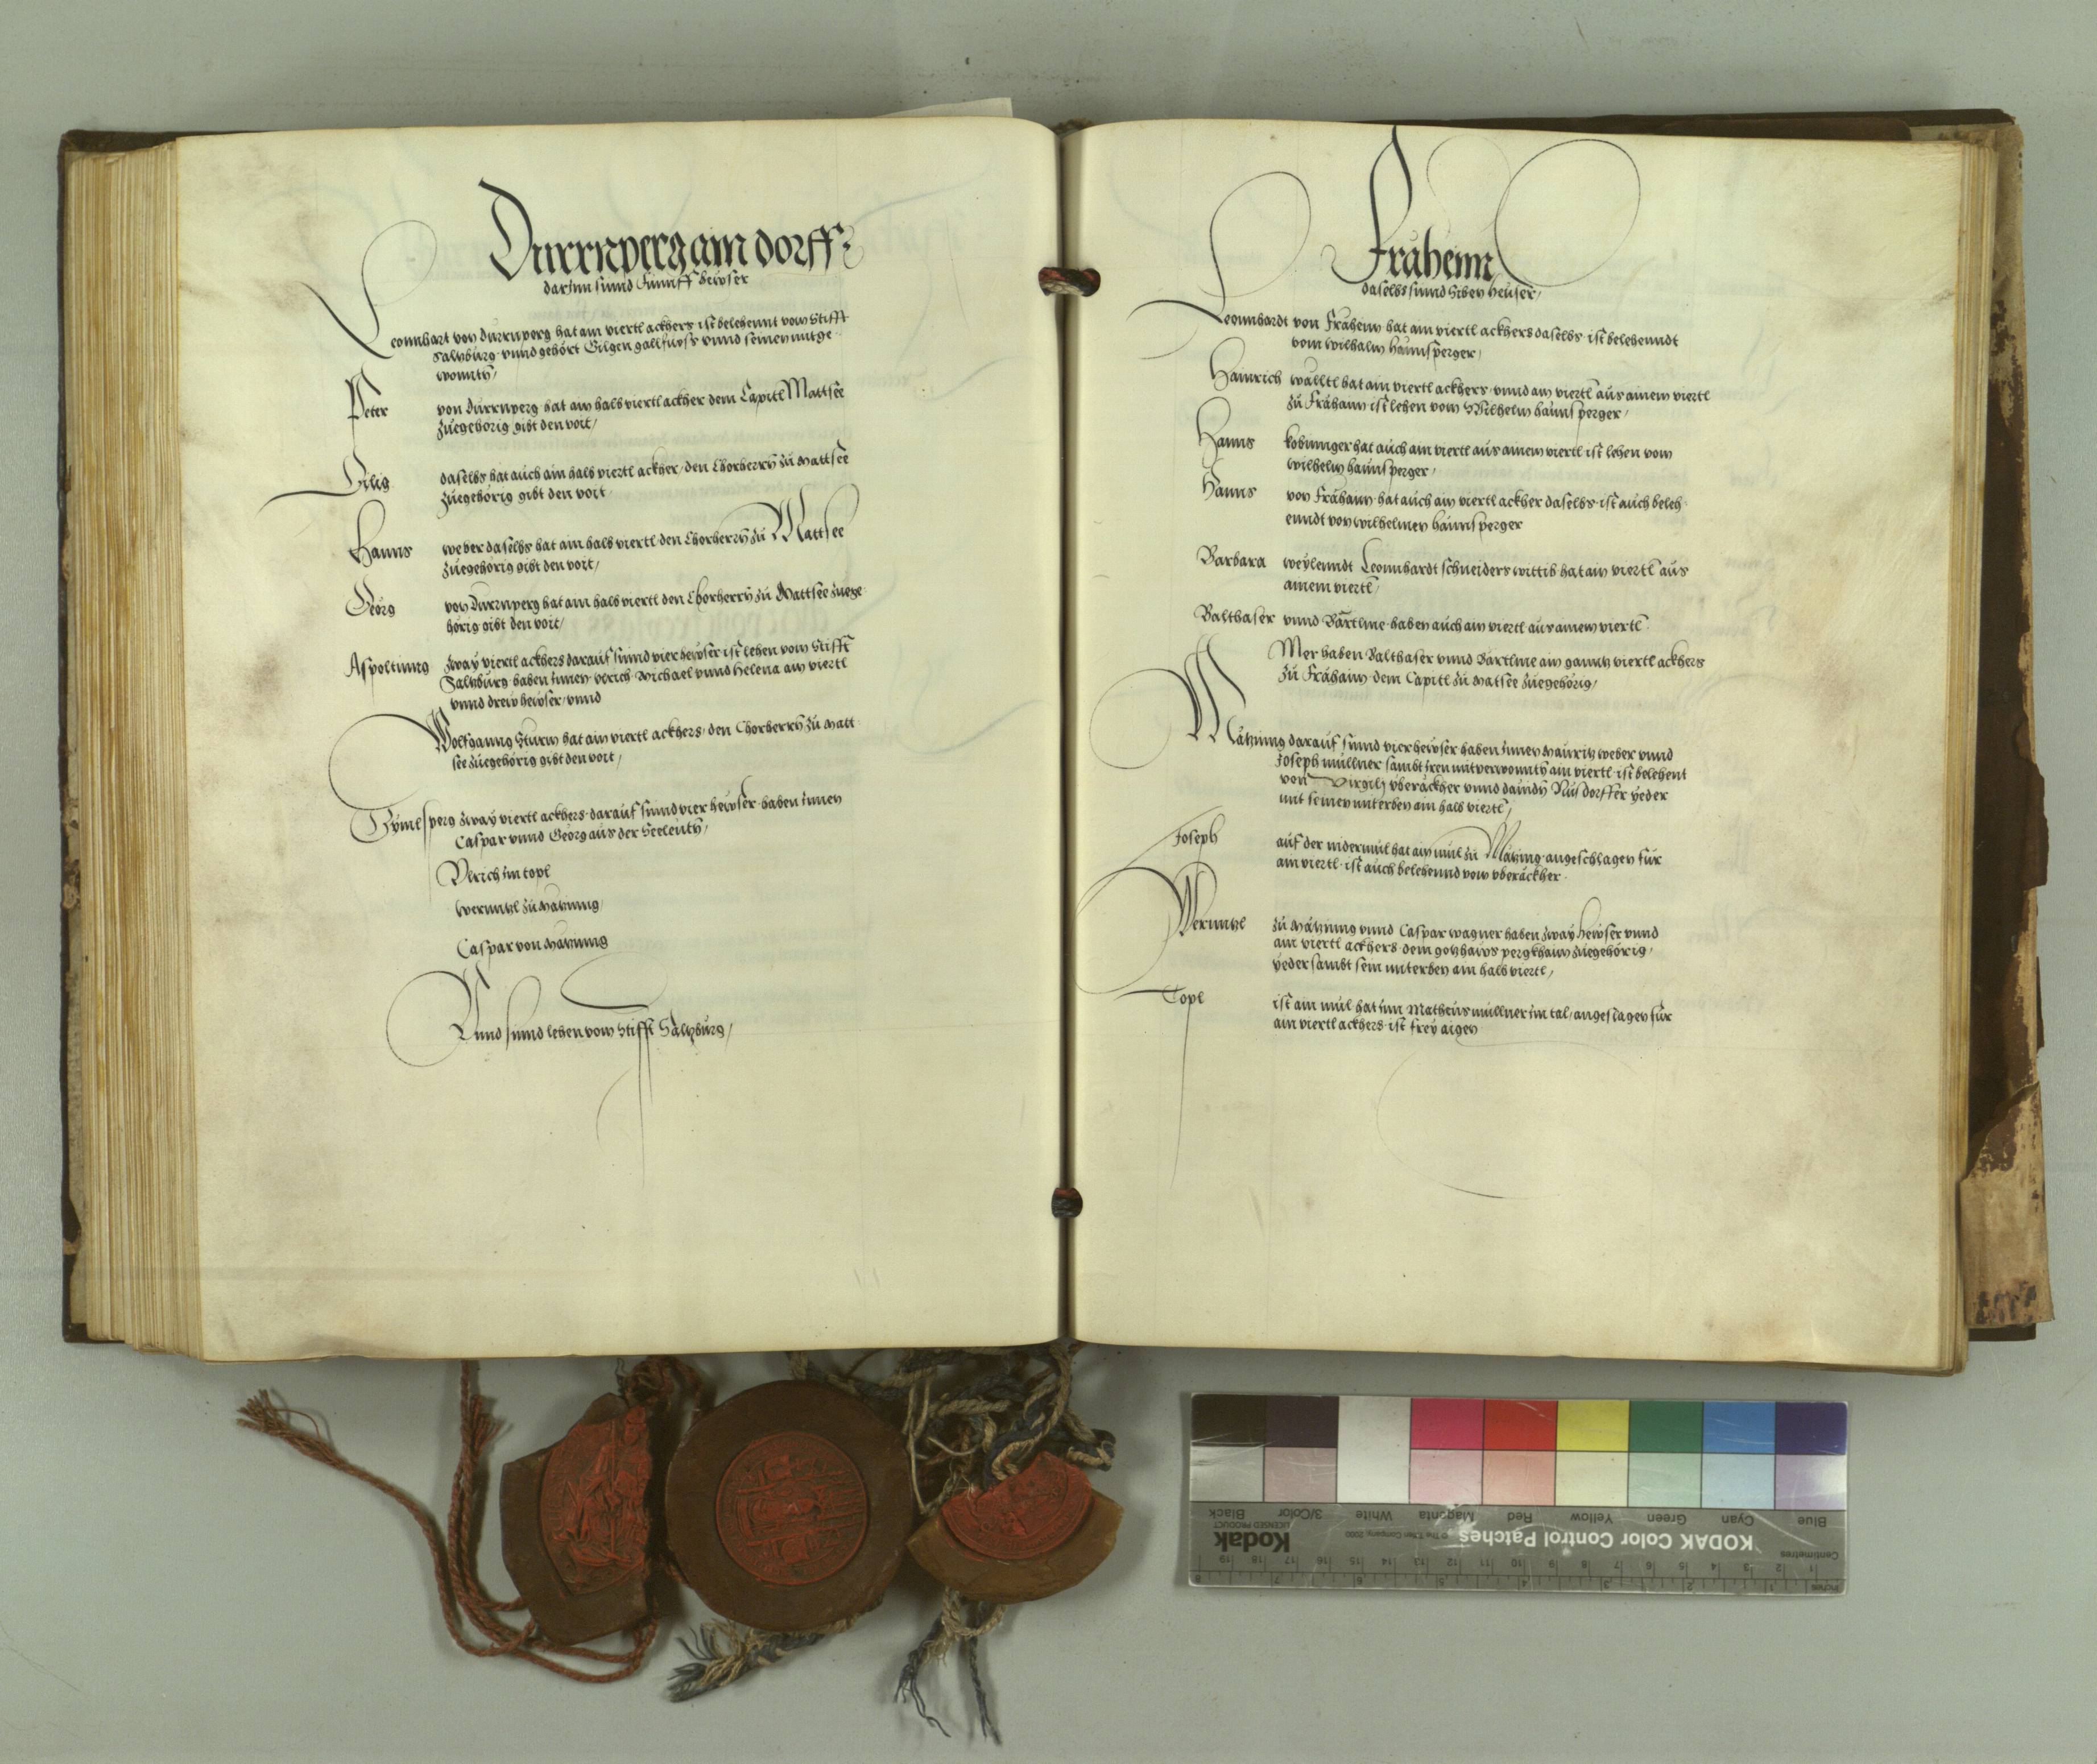 Durrnperg ain dorff
darinn sinnd Funff hewser
Leonnhart von Durrnperg hat ain viertl ackhers ist belehennt vom Stifft
Saltzburg vnnd gehört Gilgen vnnd seinen mitge
wonntn
Peter von Durrnperg hat ain halb viertl ackher dem Capitl Mattsee
zuegehörig gibt den voit
Gilig daselbs hat auch ain halb viertl ackher den Chorherrn zu Mattsee
zuegehörig gibt den voit
Hanns weber daselbs hat ain halb viertl den Chorherrn zu Mattsee
zuegehörig gibt den voit
Georg von Durrnperg hat ain halb viertl den Chorherrn zu Mattsee zuege
hörig gibt den voit
Aspoltinng zway viertl ackhers darauf sinnd vier hewser ist lehen vom Stifft
Saltzburg haben innen vlrich Michael vnnd Helena ain viertl
vnnd drew hewser vnnd
Wolfganng Sturm hat ain viertl ackhers den Chorherrn zu Matt
see zuegehörig gibt den voit
zway viertl ackhers darauf sinnd vier hewser haben innen
Caspar vnnd Georg aus der Seeleutn
Vlrich im topl
werntzl zu Matzinng
Caspar von Matzinng
Vnnd sinnd lehen vom Stifft Saltzburg
Fräheim
daselbs sinnd Siben heuser
Leonnhardt von Fräheim hat ain viertl ackhers daselbs ist belehenndt
vom wilhalm haunsperger
Hainrich walltl hat ain viertl ackhers vnnd ain viertl aus ainem viertl
zu Frähaim ist lehen vom Wilhelm haunsperger
Hanns kobinnger hat auch ain viertl aus ainem viertl ist lehen vom
wilhelm haunsperger
Hanns von Frähaim hat auch ain viertl ackher daselbs ist auch beleh
enndt von wilhelmen haunsperger
Barbara weylenndt Leonnhardt schneiders wittib hat ain viertl aus
ainem viertl
Balthaser vnnd Bartlme haben auch ain viertl aus ainem viertl
Mer haben Balthaser vnnd Bartlme ain ganntz viertl ackhers
zu Frähaim dem Capitl zu Matsee zuegehörig
Mätzinng darauf sinnd vier hewser haben innen Mauritz weber vnnd
Joseph mullner sambt iren mitverwonntn ain viertl ist belehent
von Virgilij vberäckher vnnd dauidn Nusdorffer yeder
mit seinen miterben ain halb viertl
Joseph auf der nidermul hat ain mul zu Mätzing angeschlagen fur
ain viertl ist auch belehennd vom vberäckher
Werntzl zu Mätzinng vnnd Caspar wagner haben zway hewser vnnd
ain viertl ackhers dem gotzhaws pergkhaim zuegehörig
yeder sambt sein miterben ain halb viertl
Topl ist ain mul hat inn Matheus mullner im tal angeslagen fur
ain viertl ackhers ist frey aigen
Blue Cyan Green Yellow Red Magenta White 3/Color Black
KODAK Color Control Patches
© The Tiffen Company, 2000
Kodak
LICENSED PRODUCT
Centimetres
1 2 3 4 5 6 7 8 9 10 11 12 13 14 15 16 17 18 19
Inches
1 2 3 4 5 6 7 8